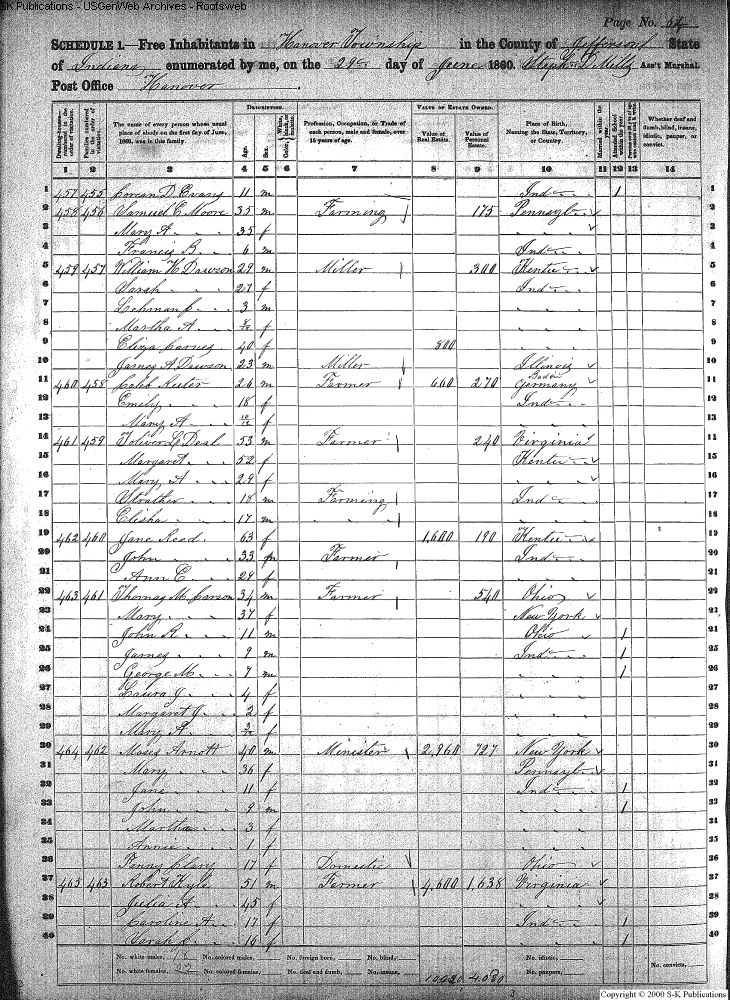 SK Publications - USGenWeb Archives - Rootsweb
Page No. 64
SCHEDULE 1.—Free Inhabitants in Hanover Township in the County of Jefferson State
of Indiana enumerated by me, on the 29th day of June 1860. Steph S Mills Ass't Marshal.
Post Office Hanover.
DESCRIPTION. VALUE OF ESTATE OWNED.
Dwelling-houses—numbered in the order of visitation. Families numbered in the order of visitation. The name of every person whose usual place of abode on the first day of June, 1860, was in this family. Age. Sex. Color, Profession, Occupation, or Trade of each person, male and female, over 15 years of age. Value of Real Estate. Value of Personal Estate. Place of Birth, Naming the State, Territory, or Country. Married within the year. Attended School within the year. Whether deaf and dumb, blind, insane, idiotic, pauper, or convict.
1 2 3 4 5 6 7 8 9 10 11 12 13 14
1 457 455 D. Evans 11 m Ind 1 1
2 458 456 Samuel C Moore 35 m Farming 175 Pennsylv 2
3 Mary A 35 f " 3
4 Francis B 6 m Ind 4
5 459 457 William H Dawson 29 m Miller 300 Kentu 5
6 Sarah 27 f Ind 6
7 Lehman 3 m " 7
8 Martha A f " 8
9 Eliza Carnes 40 f 800 " 9
10 James A Dawson 23 m Miller Illinois 10
11 460 458 Caleb 26 m Farmer 660 270 Baden Germany 11
12 Emily 18 f Ind 12
13 Mary A 10/12 f " 13
14 461 459 Toliver L Deal 53 m Farmer 240 Virginia 11
15 Margaret 52 f Kentu 15
16 Mary A 29 f " 16
17 Strather 18 m Farming Ind 17
18 Elisha 17 m " " 18
19 462 460 Jane Reed 63 f 1,600 190 Kentu 19
20 John 33 m Farmer Ind 20
21 Ann E 29 f " 21
22 463 461 Thomas M Carson 34 m Farmer 540 Ohio 22
23 Mary 37 f New York 23
24 John R 11 m Ohio 1 24
25 James 9 m Ind 1 25
26 George M 7 m " 1 26
27 Laura J 4 f " 27
28 Margaret J 2 f " 28
29 Mary A f " 29
30 464 462 Moses Arnott 40 m Minister 2,960 727 New York 30
31 Mary 36 f Pennsylv 31
32 Jane 11 f Ind 1 32
33 John 9 m " 1 33
34 Martha 3 f " 34
35 Annie 1 f " 35
36 Fanny Clary 17 f Domestic Ohio 36
37 465 463 Robert Kyle 51 m Farmer 4,600 1,638 Virginia 37
38 Julia A 45 f " 38
39 Caroline A 17 f Ind 1 39
40 Sarah 16 f " 1 40
No. white males, 18 No. colored males, No. foreign born, No. blind, No. idiotic, No. convicts,
No. white females, 22 No. colored females, No. deaf and dumb, No. insane, 4,080 No. paupers,
Copyright © 2000 S-K Publications